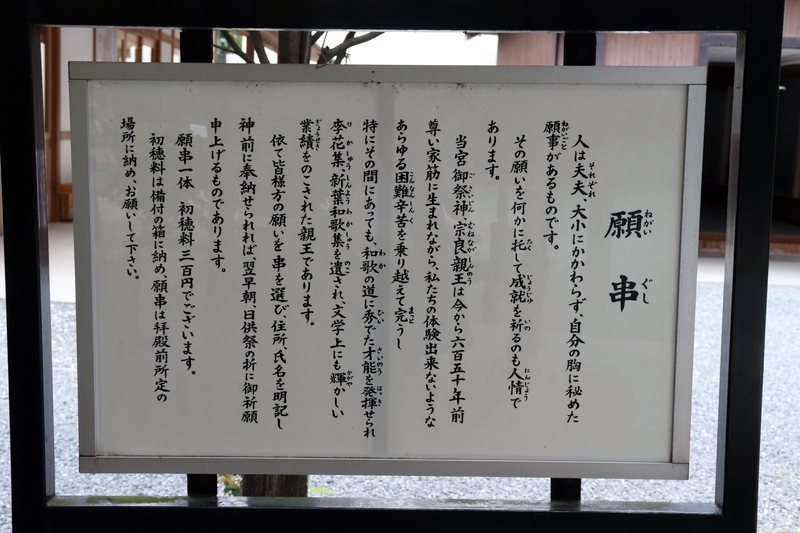 願串
人は夫夫、大小にかかわらず、自分の胸に秘めた
願事があるものです。
その願いを何かに托して成就を祈るのも人情で
あります。
当宮御祭神、宗良親王は今から六百五十年前
尊い家筋に生まれながら、私たちの体験出来ないような
あらゆる困難辛苦を乗り越えて完うし
特にその間にあっても、和歌の道に秀でた才能を発揮せられ
李花集、新葉和歌集を遺され、文学上にも輝かしい
業績をのこされた親王であります。
依て皆様方の願いを串を選び、住所、氏名を明記し
神前に奉納せられれば、翌早朝、日供祭の折に御祈願
申上げるものであります。
願串一体　初穂料三百円でございます。
初穂料は備付の箱に納め、願串は拝殿前所定の
場所に納め、お願いして下さい。